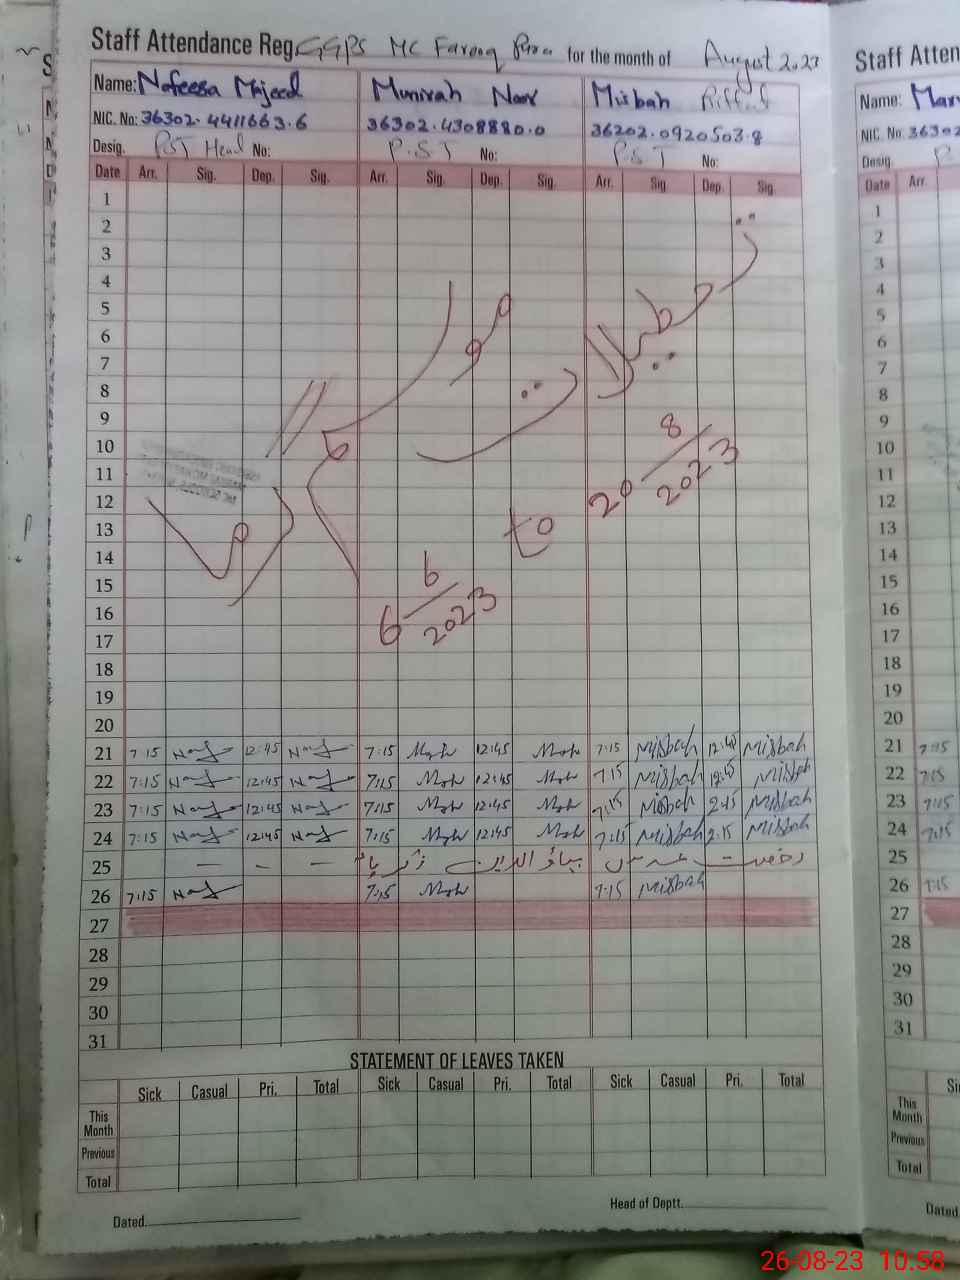 Staff Attendance Reg. GGPS MC Farooq Pura for the month of August 2023
Name: Nafeesa Majeed Munirah Noor Misbah
NIC. No: 36302.4411663.6 36302.4308880.0 36202.0920503.8
Desig. PST Head No: P.S.T No: P.S.T No:
Date Arr. Sig. Dep. Sig. Arr. Sig. Dep. Sig. Arr. Sig. Dep. Sig.
1
2
3
4
5
6
7
8
9
10
11
12
13
14
15
16
17
18
19
20
تعطیلات موسم گرما
6 6/2023 to 20 8/2023
21 7:15 12:45 7:15 12:45 7:15 Misbah 12:45 Misbah
22 7:15 12:45 7:15 12:45 7:15 Misbah 12:45 Misbah
23 7:15 12:45 7:15 12:45 7:15 Misbah 2:15 Misbah
24 7:15 12:45 7:15 12:45 7:15 Misbah 2:15 Misbah
25 — – — رخصت عرس بہاؤالدین زکریا
26 7:15 7:15 7:15 Misbah
27
28
29
30
31
STATEMENT OF LEAVES TAKEN
Sick Casual Pri. Total Sick Casual Pri. Total Sick Casual Pri. Total
This Month
Previous
Total
Dated. Head of Deptt.
Staff Atten
Name:
NIC. No: 36302
Desig. P
Date Arr.
1
2
3
4
5
6
7
8
9
10
11
12
13
14
15
16
17
18
19
20
21 7:15
22 7:15
23 7:15
24 7:15
25
26 7:15
27
28
29
30
31
This Month
Previous
Total
Dated.
26-08-23 10:58